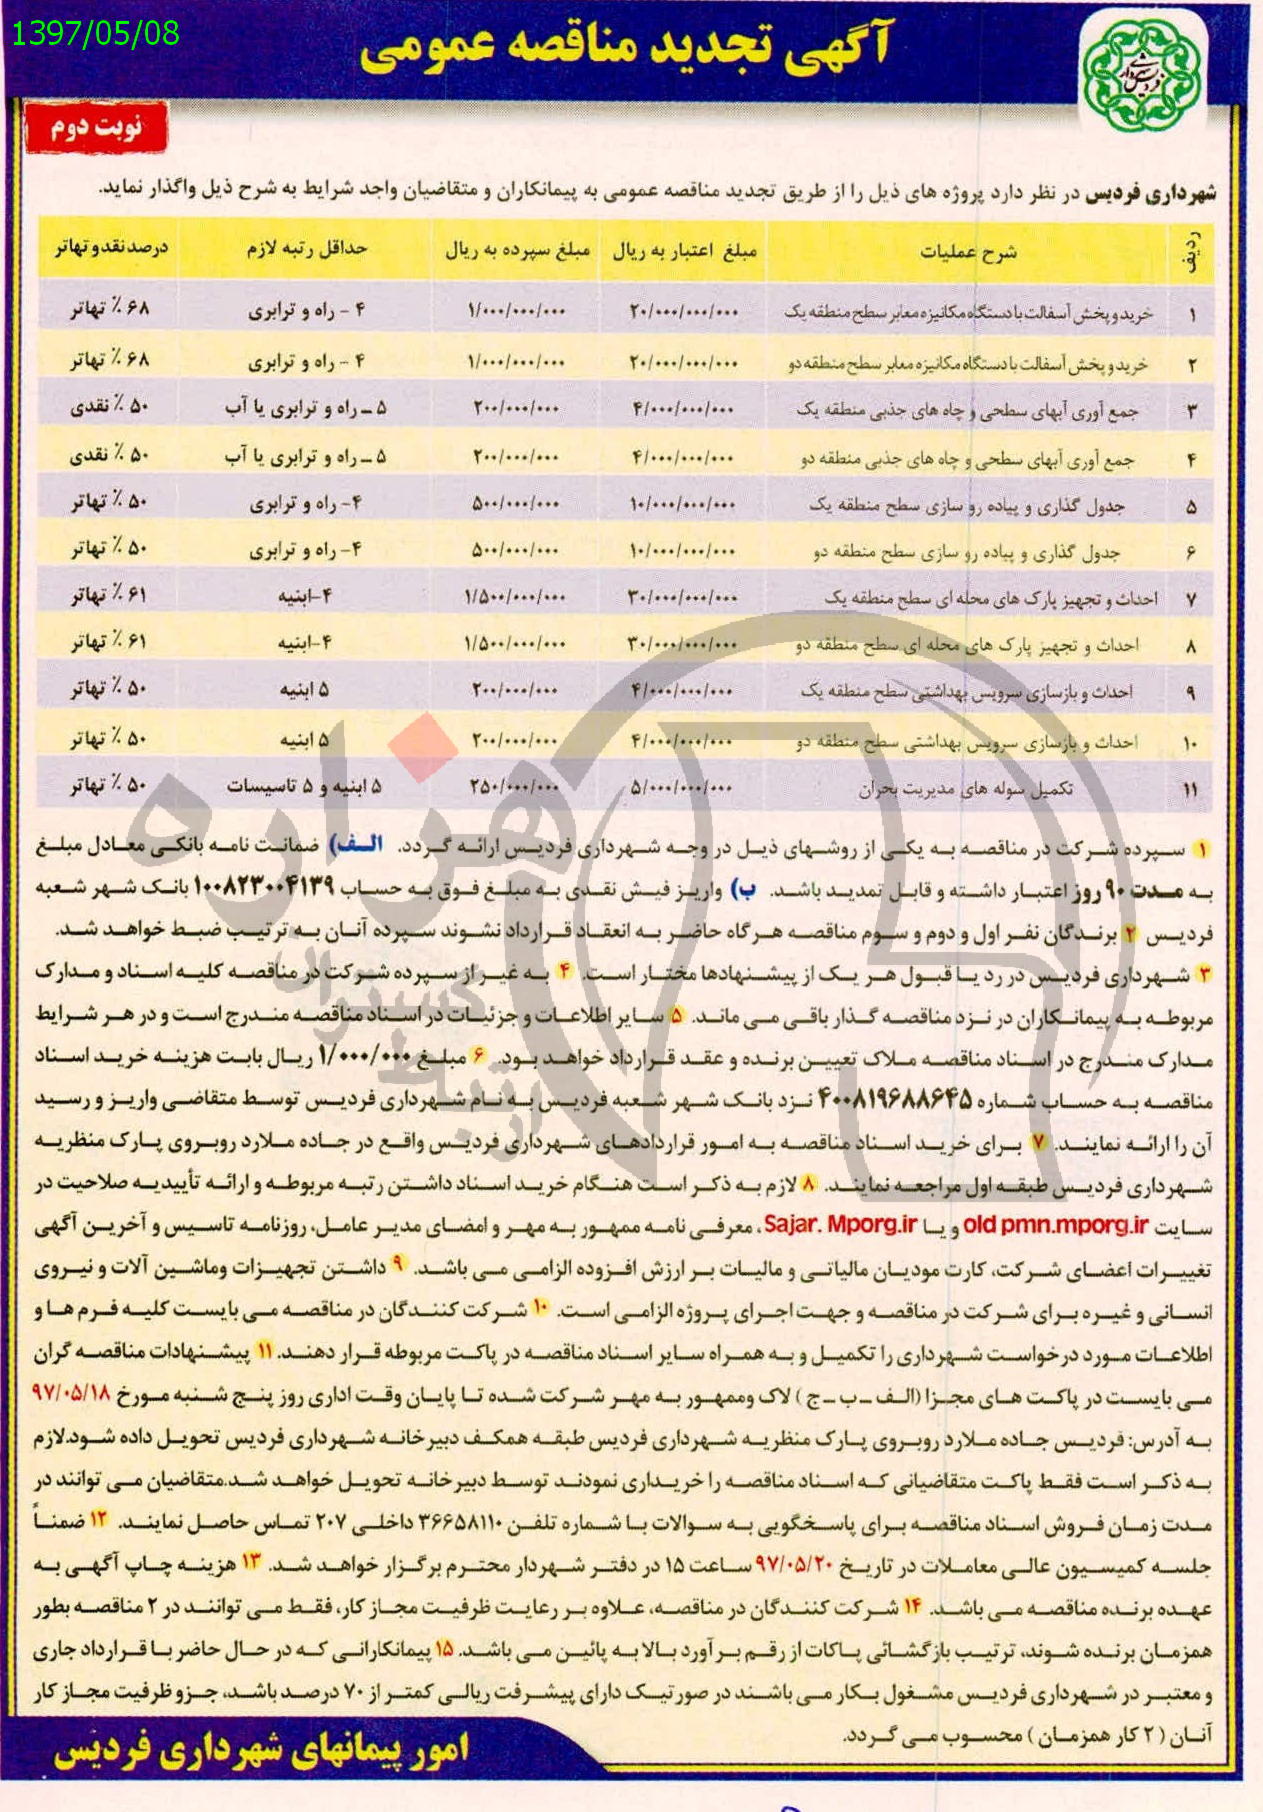 1397/05/08
آگهی تجدید مناقصه عمومی
شهرداری فردیس
نوبت دوم
شهرداری فردیس در نظر دارد پروژه های ذیل را از طریق تجدید مناقصه عمومی به پیمانکاران و متقاضیان واجد شرایط به شرح ذیل واگذار نماید.
ردیف شرح عملیات مبلغ اعتبار به ریال مبلغ سپرده به ریال حداقل رتبه لازم درصد نقد و تهاتر
۱ خرید و پخش آسفالت با دستگاه مکانیزه معابر سطح منطقه یک ۲۰/۰۰۰/۰۰۰/۰۰۰ ۱/۰۰۰/۰۰۰/۰۰۰ ۴ - راه و ترابری ۶۸ ٪ تهاتر
۲ خرید و پخش آسفالت با دستگاه مکانیزه معابر سطح منطقه دو ۲۰/۰۰۰/۰۰۰/۰۰۰ ۱/۰۰۰/۰۰۰/۰۰۰ ۴ - راه و ترابری ۶۸ ٪ تهاتر
۳ جمع آوری آبهای سطحی و چاه های جذبی منطقه یک ۴/۰۰۰/۰۰۰/۰۰۰ ۲۰۰/۰۰۰/۰۰۰ ۵ - راه و ترابری یا آب ۵۰ ٪ نقدی
۴ جمع آوری آبهای سطحی و چاه های جذبی منطقه دو ۴/۰۰۰/۰۰۰/۰۰۰ ۲۰۰/۰۰۰/۰۰۰ ۵ - راه و ترابری یا آب ۵۰ ٪ نقدی
۵ جدول گذاری و پیاده رو سازی سطح منطقه یک ۱۰/۰۰۰/۰۰۰/۰۰۰ ۵۰۰/۰۰۰/۰۰۰ ۴- راه و ترابری ۵۰ ٪ تهاتر
۶ جدول گذاری و پیاده رو سازی سطح منطقه دو ۱۰/۰۰۰/۰۰۰/۰۰۰ ۵۰۰/۰۰۰/۰۰۰ ۴- راه و ترابری ۵۰ ٪ تهاتر
۷ احداث و تجهیز پارک های محله ای سطح منطقه یک ۳۰/۰۰۰/۰۰۰/۰۰۰ ۱/۵۰۰/۰۰۰/۰۰۰ ۴-ابنیه ۶۱ ٪ تهاتر
۸ احداث و تجهیز پارک های محله ای سطح منطقه دو ۳۰/۰۰۰/۰۰۰/۰۰۰ ۱/۵۰۰/۰۰۰/۰۰۰ ۴-ابنیه ۶۱ ٪ تهاتر
۹ احداث و بازسازی سرویس بهداشتی سطح منطقه یک ۴/۰۰۰/۰۰۰/۰۰۰ ۲۰۰/۰۰۰/۰۰۰ ۵ ابنیه ۵۰ ٪ تهاتر
۱۰ احداث و بازسازی سرویس بهداشتی سطح منطقه دو ۴/۰۰۰/۰۰۰/۰۰۰ ۲۰۰/۰۰۰/۰۰۰ ۵ ابنیه ۵۰ ٪ تهاتر
۱۱ تکمیل سوله های مدیریت بحران ۵/۰۰۰/۰۰۰/۰۰۰ ۲۵۰/۰۰۰/۰۰۰ ۵ ابنیه و ۵ تاسیسات ۵۰ ٪ تهاتر
۱ سپرده شرکت در مناقصه به یکی از روشهای ذیل در وجه شهرداری فردیس ارائه گردد. الف) ضمانت نامه بانکی معادل مبلغ
به مدت ۹۰ روز اعتبار داشته و قابل تمدید باشد. ب) واریز فیش نقدی به مبلغ فوق به حساب ۱۰۰۸۲۳۰۰۴۱۳۹ بانک شهر شعبه
فردیس ۲ برندگان نفر اول و دوم و سوم مناقصه هرگاه حاضر به انعقاد قرارداد نشوند سپرده آنان به ترتیب ضبط خواهد شد.
۳ شهرداری فردیس در رد یا قبول هر یک از پیشنهادها مختار است. ۴ به غیر از سپرده شرکت در مناقصه کلیه اسناد و مدارک
مربوطه به پیمانکاران در نزد مناقصه گذار باقی می ماند. ۵ سایر اطلاعات و جزئیات در اسناد مناقصه مندرج است و در هر شرایط
مدارک مندرج در اسناد مناقصه ملاک تعیین برنده و عقد قرارداد خواهد بود. ۶ مبلغ ۱/۰۰۰/۰۰۰ ریال بابت هزینه خرید اسناد
مناقصه به حساب شماره ۴۰۰۸۱۹۶۸۸۶۴۵ نزد بانک شهر شعبه فردیس به نام شهرداری فردیس توسط متقاضی واریز و رسید
آن را ارائه نمایند. ۷ برای خرید اسناد مناقصه به امور قراردادهای شهرداری فردیس واقع در جاده ملارد روبروی پارک منظریه
شهرداری فردیس طبقه اول مراجعه نمایند. ۸ لازم به ذکر است هنگام خرید اسناد داشتن رتبه مربوطه و ارائه تأییدیه صلاحیت در
سایت old pmn.mporg.ir و یا Sajar. Mporg.ir، معرفی نامه ممهور به مهر و امضای مدیر عامل، روزنامه تاسیس و آخرین آگهی
تغییرات اعضای شرکت، کارت مودیان مالیاتی و مالیات بر ارزش افزوده الزامی می باشد. ۹ داشتن تجهیزات وماشین آلات و نیروی
انسانی و غیره برای شرکت در مناقصه و جهت اجرای پروژه الزامی است. ۱۰ شرکت کنندگان در مناقصه می بایست کلیه فرم ها و
اطلاعات مورد درخواست شهرداری را تکمیل و به همراه سایر اسناد مناقصه در پاکت مربوطه قرار دهند. ۱۱ پیشنهادات مناقصه گران
می بایست در پاکت های مجزا (الف - ب - ج ) لاک وممهور به مهر شرکت شده تا پایان وقت اداری روز پنج شنبه مورخ ۹۷/۰۵/۱۸
به آدرس: فردیس جاده ملارد روبروی پارک منظریه شهرداری فردیس طبقه همکف دبیرخانه شهرداری فردیس تحویل داده شود.لازم
به ذکر است فقط پاکت متقاضیانی که اسناد مناقصه را خریداری نمودند توسط دبیرخانه تحویل خواهد شد.متقاضیان می توانند در
مدت زمان فروش اسناد مناقصه برای پاسخگویی به سوالات با شماره تلفن ۳۶۶۵۸۱۱۰ داخلی ۲۰۷ تماس حاصل نمایند. ۱۲ ضمناً
جلسه کمیسیون عالی معاملات در تاریخ ۹۷/۰۵/۲۰ ساعت ۱۵ در دفتر شهردار محترم برگزار خواهد شد. ۱۳ هزینه چاپ آگهی به
عهده برنده مناقصه می باشد. ۱۴ شرکت کنندگان در مناقصه، علاوه بر رعایت ظرفیت مجاز کار، فقط می توانند در ۲ مناقصه بطور
همزمان برنده شوند، ترتیب بازگشائی پاکات از رقم برآورد بالا به پائین می باشد. ۱۵ پیمانکارانی که در حال حاضر با قرارداد جاری
و معتبر در شهرداری فردیس مشغول بکار می باشند در صورتیک دارای پیشرفت ریالی کمتر از ۷۰ درصد باشد، جزو ظرفیت مجاز کار
آنان ( ۲ کار همزمان ) محسوب می گردد.
امور پیمانهای شهرداری فردیس
هزاره